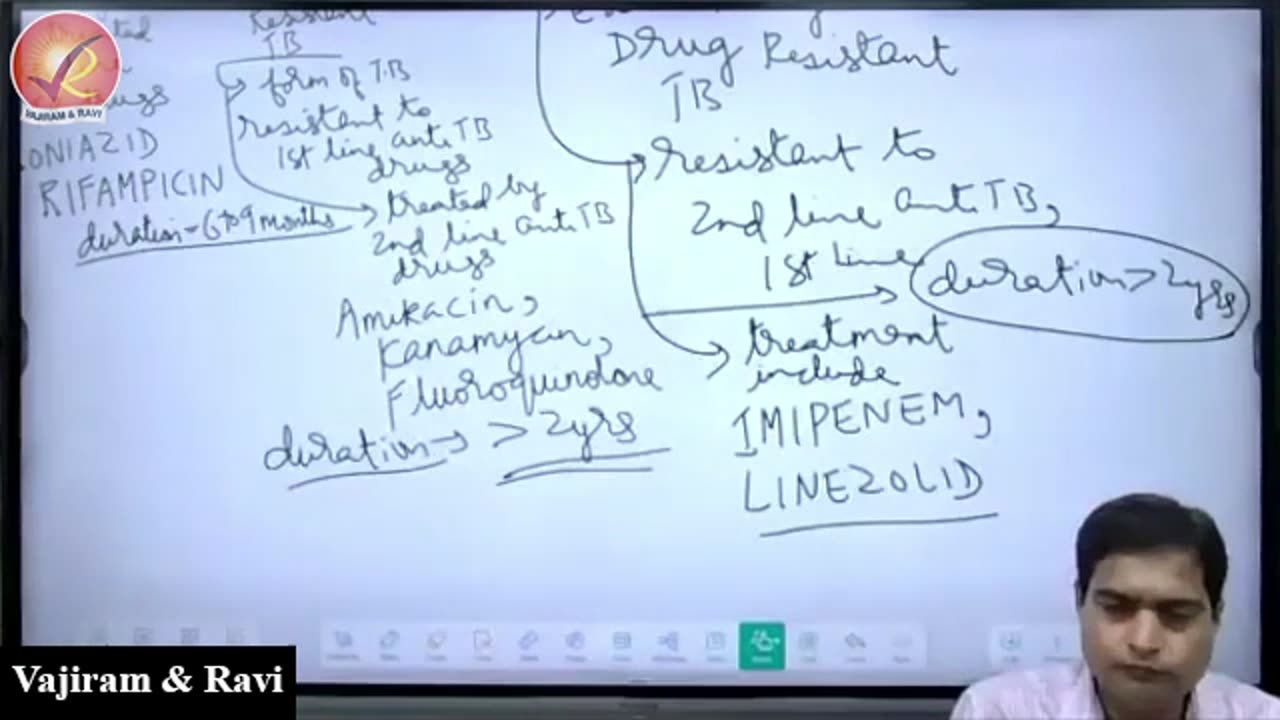 VAJIRAM & RAVI
ONIAZID
RIFAMPICIN
duration - 6 to 9 months
Resistant
TB
form of TB
resistant to
1st line anti TB
drugs
treated by
2nd line anti TB
drugs
Amikacin,
Kanamycin,
Fluoroquinolone
duration → > 2yrs
Drug Resistant
TB
resistant to
2nd line anti TB,
1st line
duration > 2yrs
treatment
include
IMIPENEM,
LINEZOLID
Vajiram & Ravi